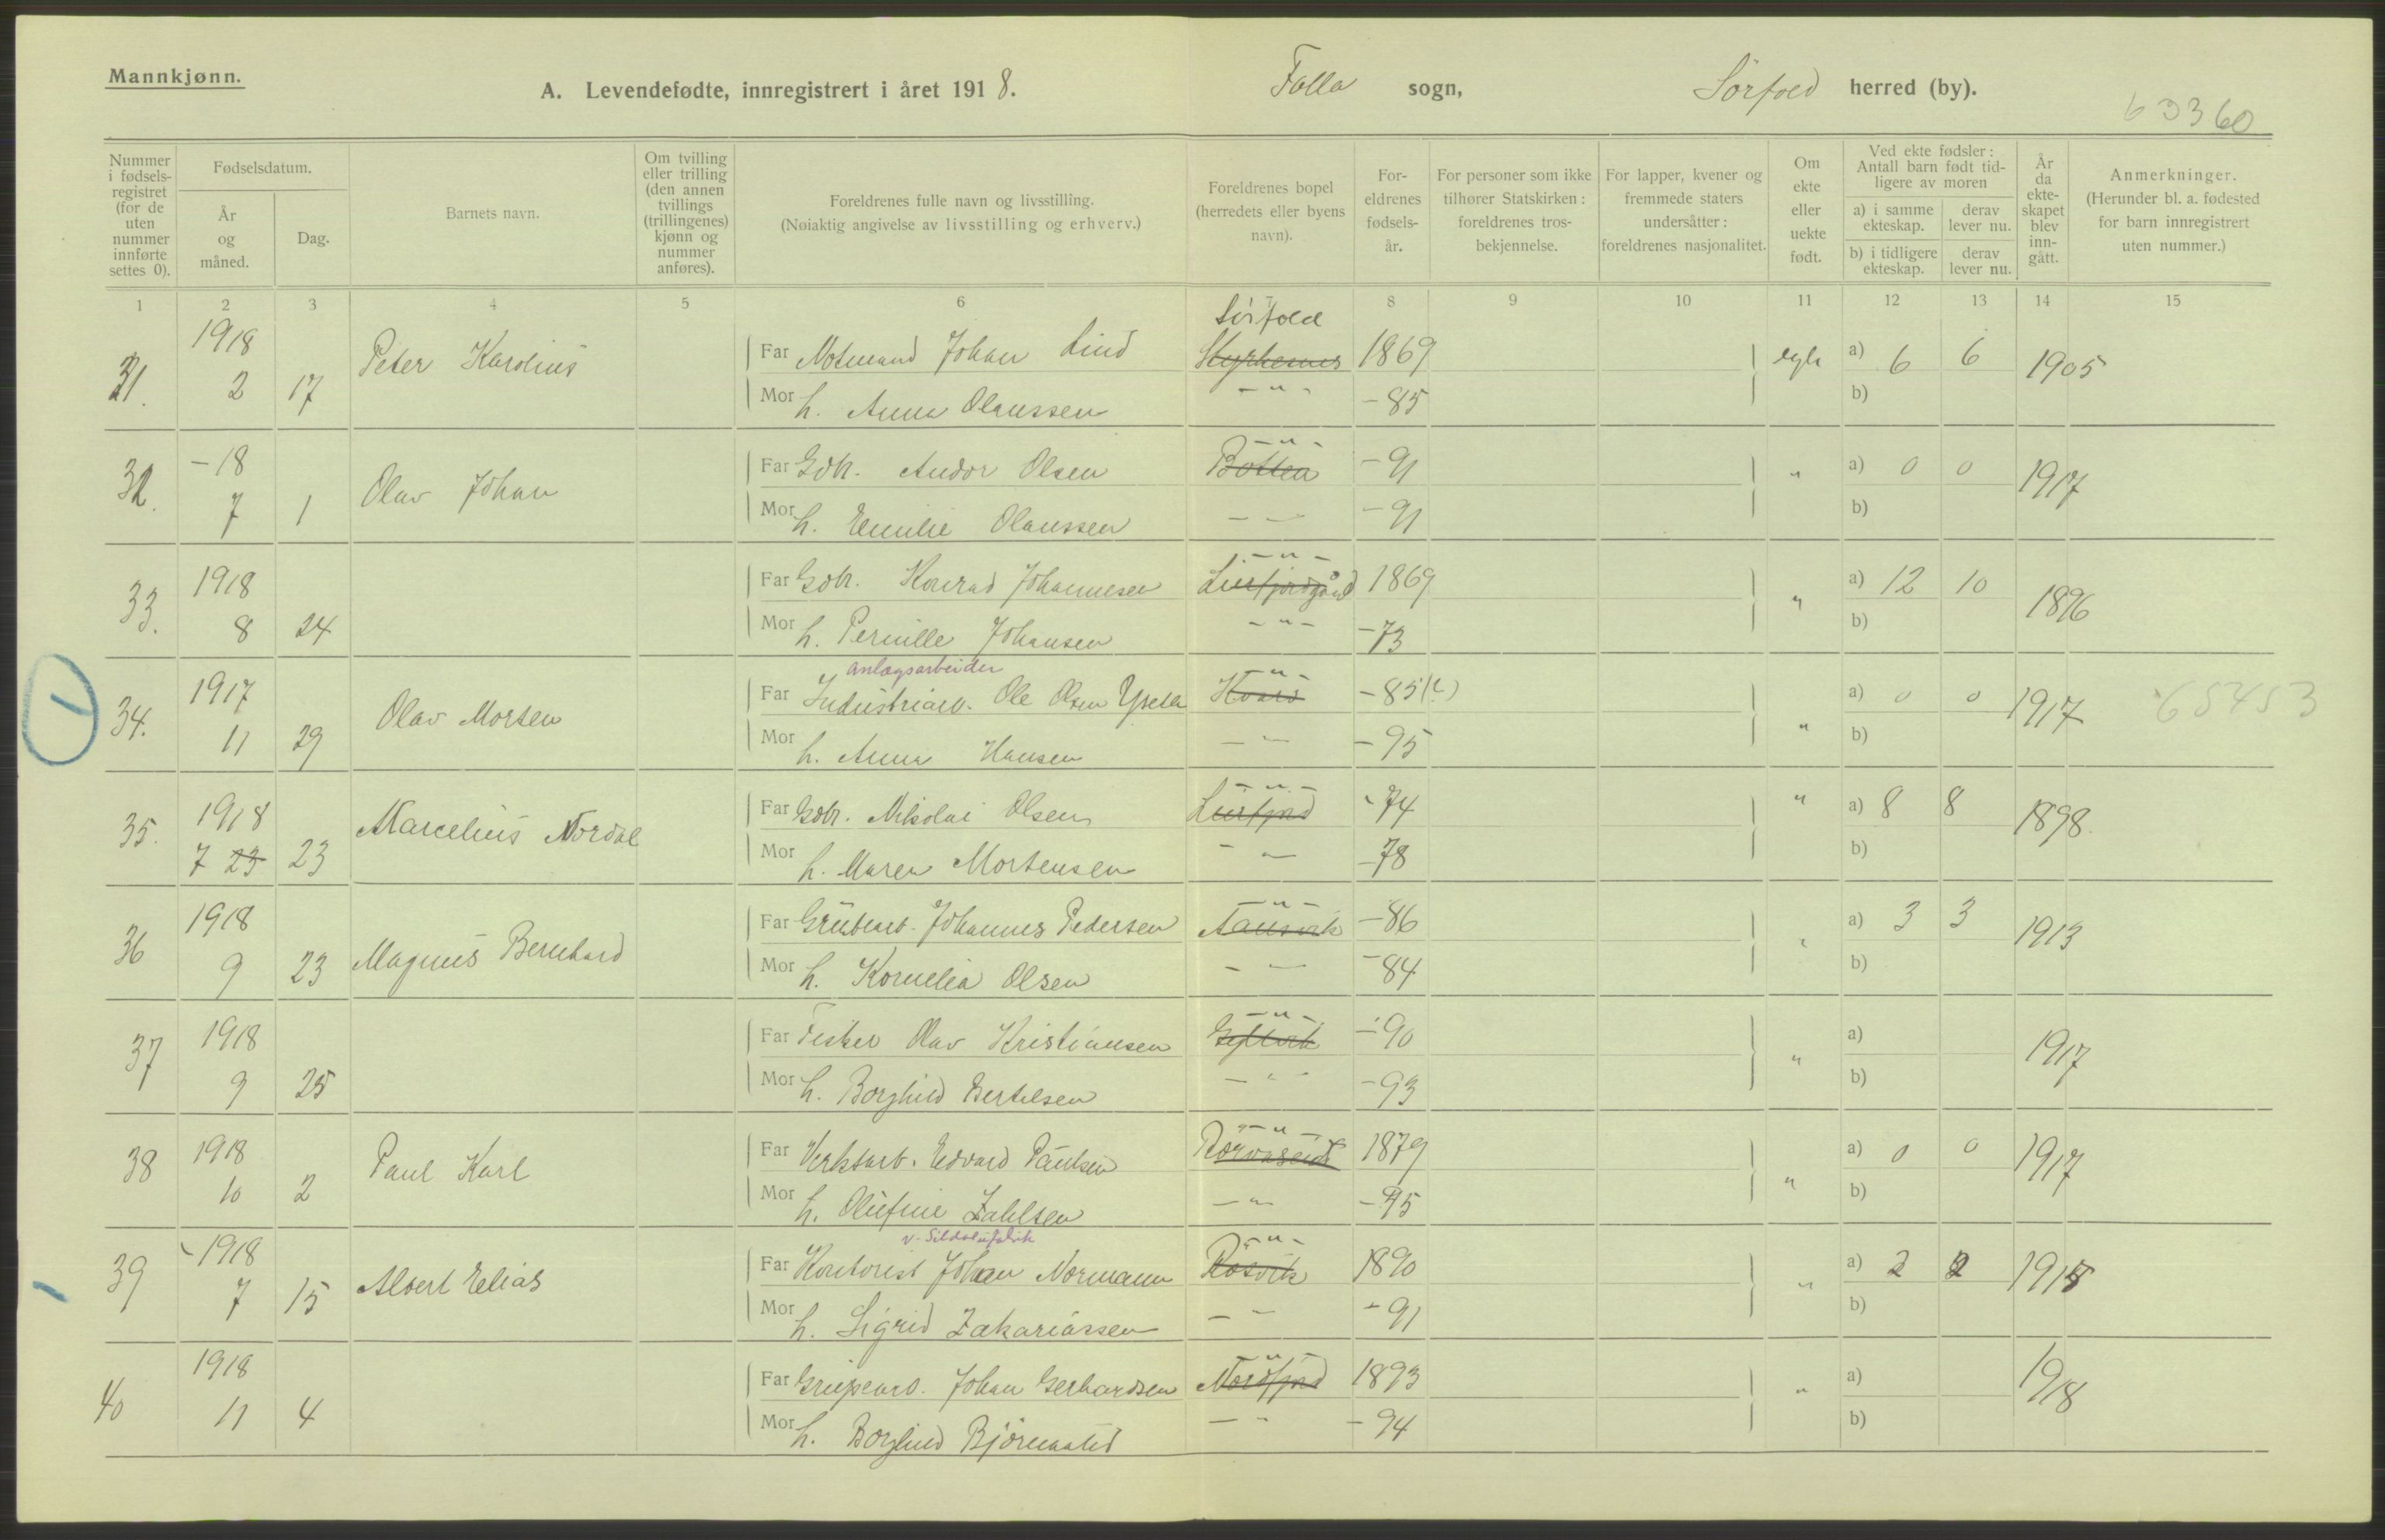 Mannkjønn.
A. Levendefødte, innregistrert i året 1918. Folla sogn, Sörfold herred (by).
63360
Nummer i fødselsregistret (for de uten nummer innførte settes 0).
Fødselsdatum.
År og måned.
Dag.
Barnets navn.
Om tvilling eller trilling (den annen tvillings (trillingenes) kjønn og nummer anføres).
Foreldrenes fulle navn og livsstilling.
(Nøiaktig angivelse av livsstilling og erhverv.)
Foreldrenes bopel (herredets eller byens navn).
Foreldrenes fødselsår.
For personer som ikke tilhører Statskirken: foreldrenes trosbekjennelse.
For lapper, kvener og fremmede staters undersåtter: foreldrenes nasjonalitet.
Om ekte eller uekte født.
Ved ekte fødsler: Antall barn født tidligere av moren
a) i samme ekteskap. derav lever nu.
b) i tidligere ekteskap. derav lever nu.
År da ekteskapet blev inngått.
Anmerkninger.
(Herunder bl. a. fødested for barn innregistrert uten nummer.)
1 2 3 4 5 6 8 9 10 11 12 13 14 15
Sörfold
31. 1918 2 17 Peter Karolius Far Notmand Johan Lind Styrkesnes 1869 egte a) 6 6 1905
Mor h. Anna Olaussen - " - - 85 b)
- " -
32. - 18 7 1 Olav Johan Far Gdbr. Andor Olsen Botten - 91 " a) 0 0 1917
Mor h. Emilie Olaussen - " - 91 b)
- " -
33. 1918 8 24 Far Gdbr. Konrad Johannesen Leirfjordgård 1869 " a) 12 10 1896
Mor h. Pernille Johansen - " - - 73 b)
anlægsarbeider - " -
34. 1917 11 29 Olav Morten Far Industriarb. Ole Olsen - 85(?) " a) 0 0 1917 65453
Mor h. Anna Hansen - " - 95 b)
- " -
35. 1918 7 23 23 Marcelius Nordal Far Gdbr. Nikolai Olsen Leirfjord - 74 " a) 8 8 1898.
Mor h. Maren Mortensen - " - 78 b)
- " -
36 1918 9 23 Magnus Bernhard Far Grubearb. Johannes Pedersen - 86 " a) 3 3 1913
Mor h. Kornelia Olsen - " - 84 b)
- " -
37 1918 9 25 Far Fisker Olav Kristiansen - 90 " a) 1917
Mor h. Borghild Bertelsen - " - 93 b)
- " -
38 1918 10 2 Paul Karl Far Verkstarb. Edvard Paulsen Rörvaseid 1879 " a) 0 0 1917
Mor h. Olufine Zahlsen - " - 95 b)
v. Sildoliefabrik - " -
39 1918 7 15 Albert Elias Far Kontorist Johan Normann Rösvik 1890 " a) 2 2 1915
Mor h. Sigrid Zakariassen - " - 91 b)
- " -
40 1918 11 4 Far Johan Gerhardsen Nordfjord 1893 " a) 1918
Mor h. Borghild - " - 94 b)